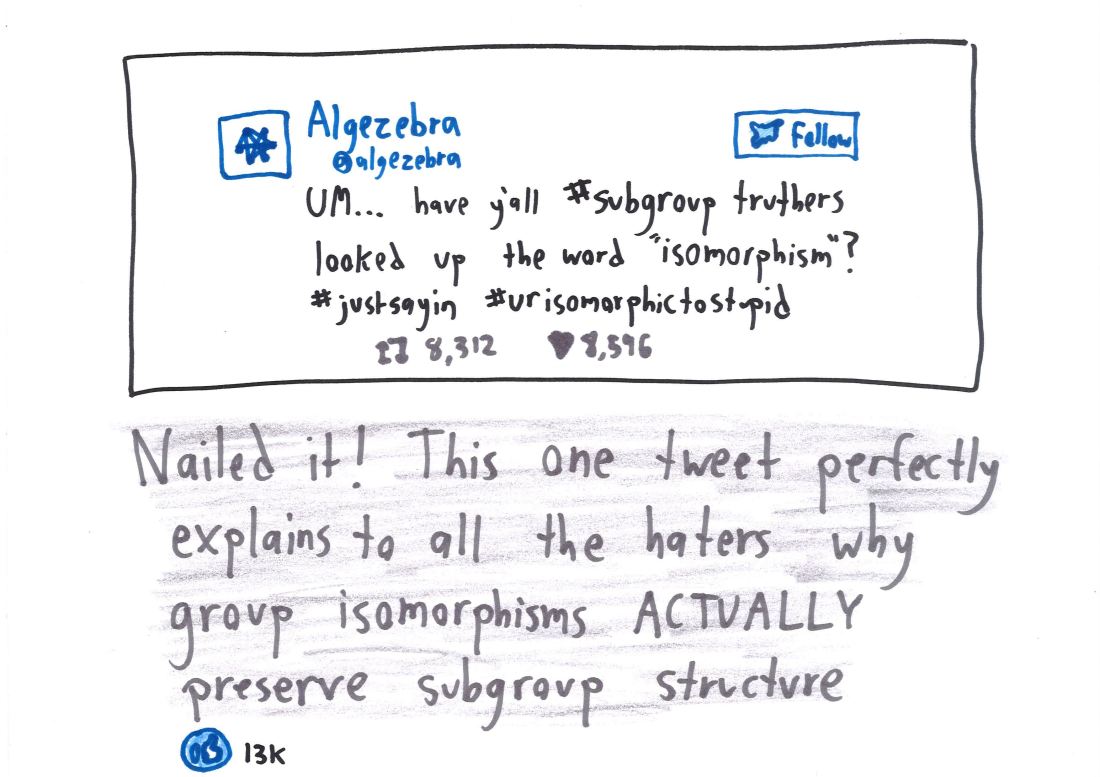 Algezebra
@algezebra
Follow
UM... have y'all #subgroup truthers
looked up the word "isomorphism"?
#justsayin #urisomorphictostupid
8,312 8,596
Nailed it! This one tweet perfectly
explains to all the haters why
group isomorphisms ACTUALLY
preserve subgroup structure
13K